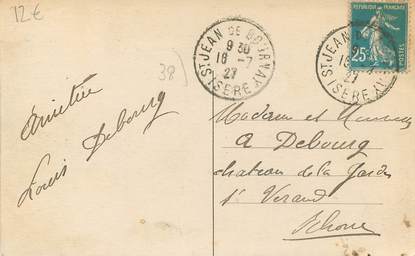 12€
38
Amitiés
Louis Debourg
ST JEAN DE BOURNAY
9 30
18 -7
27
ISERE
REPUBLIQUE FRANÇAISE
25c
POSTES
ST JEAN DE
27
ISERE
Madame et Monsieur
A Debourg
chateau de la Garde
St Verand
Rhône